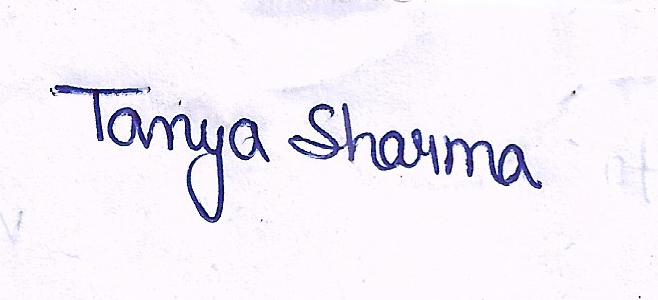 Tanya Sharma